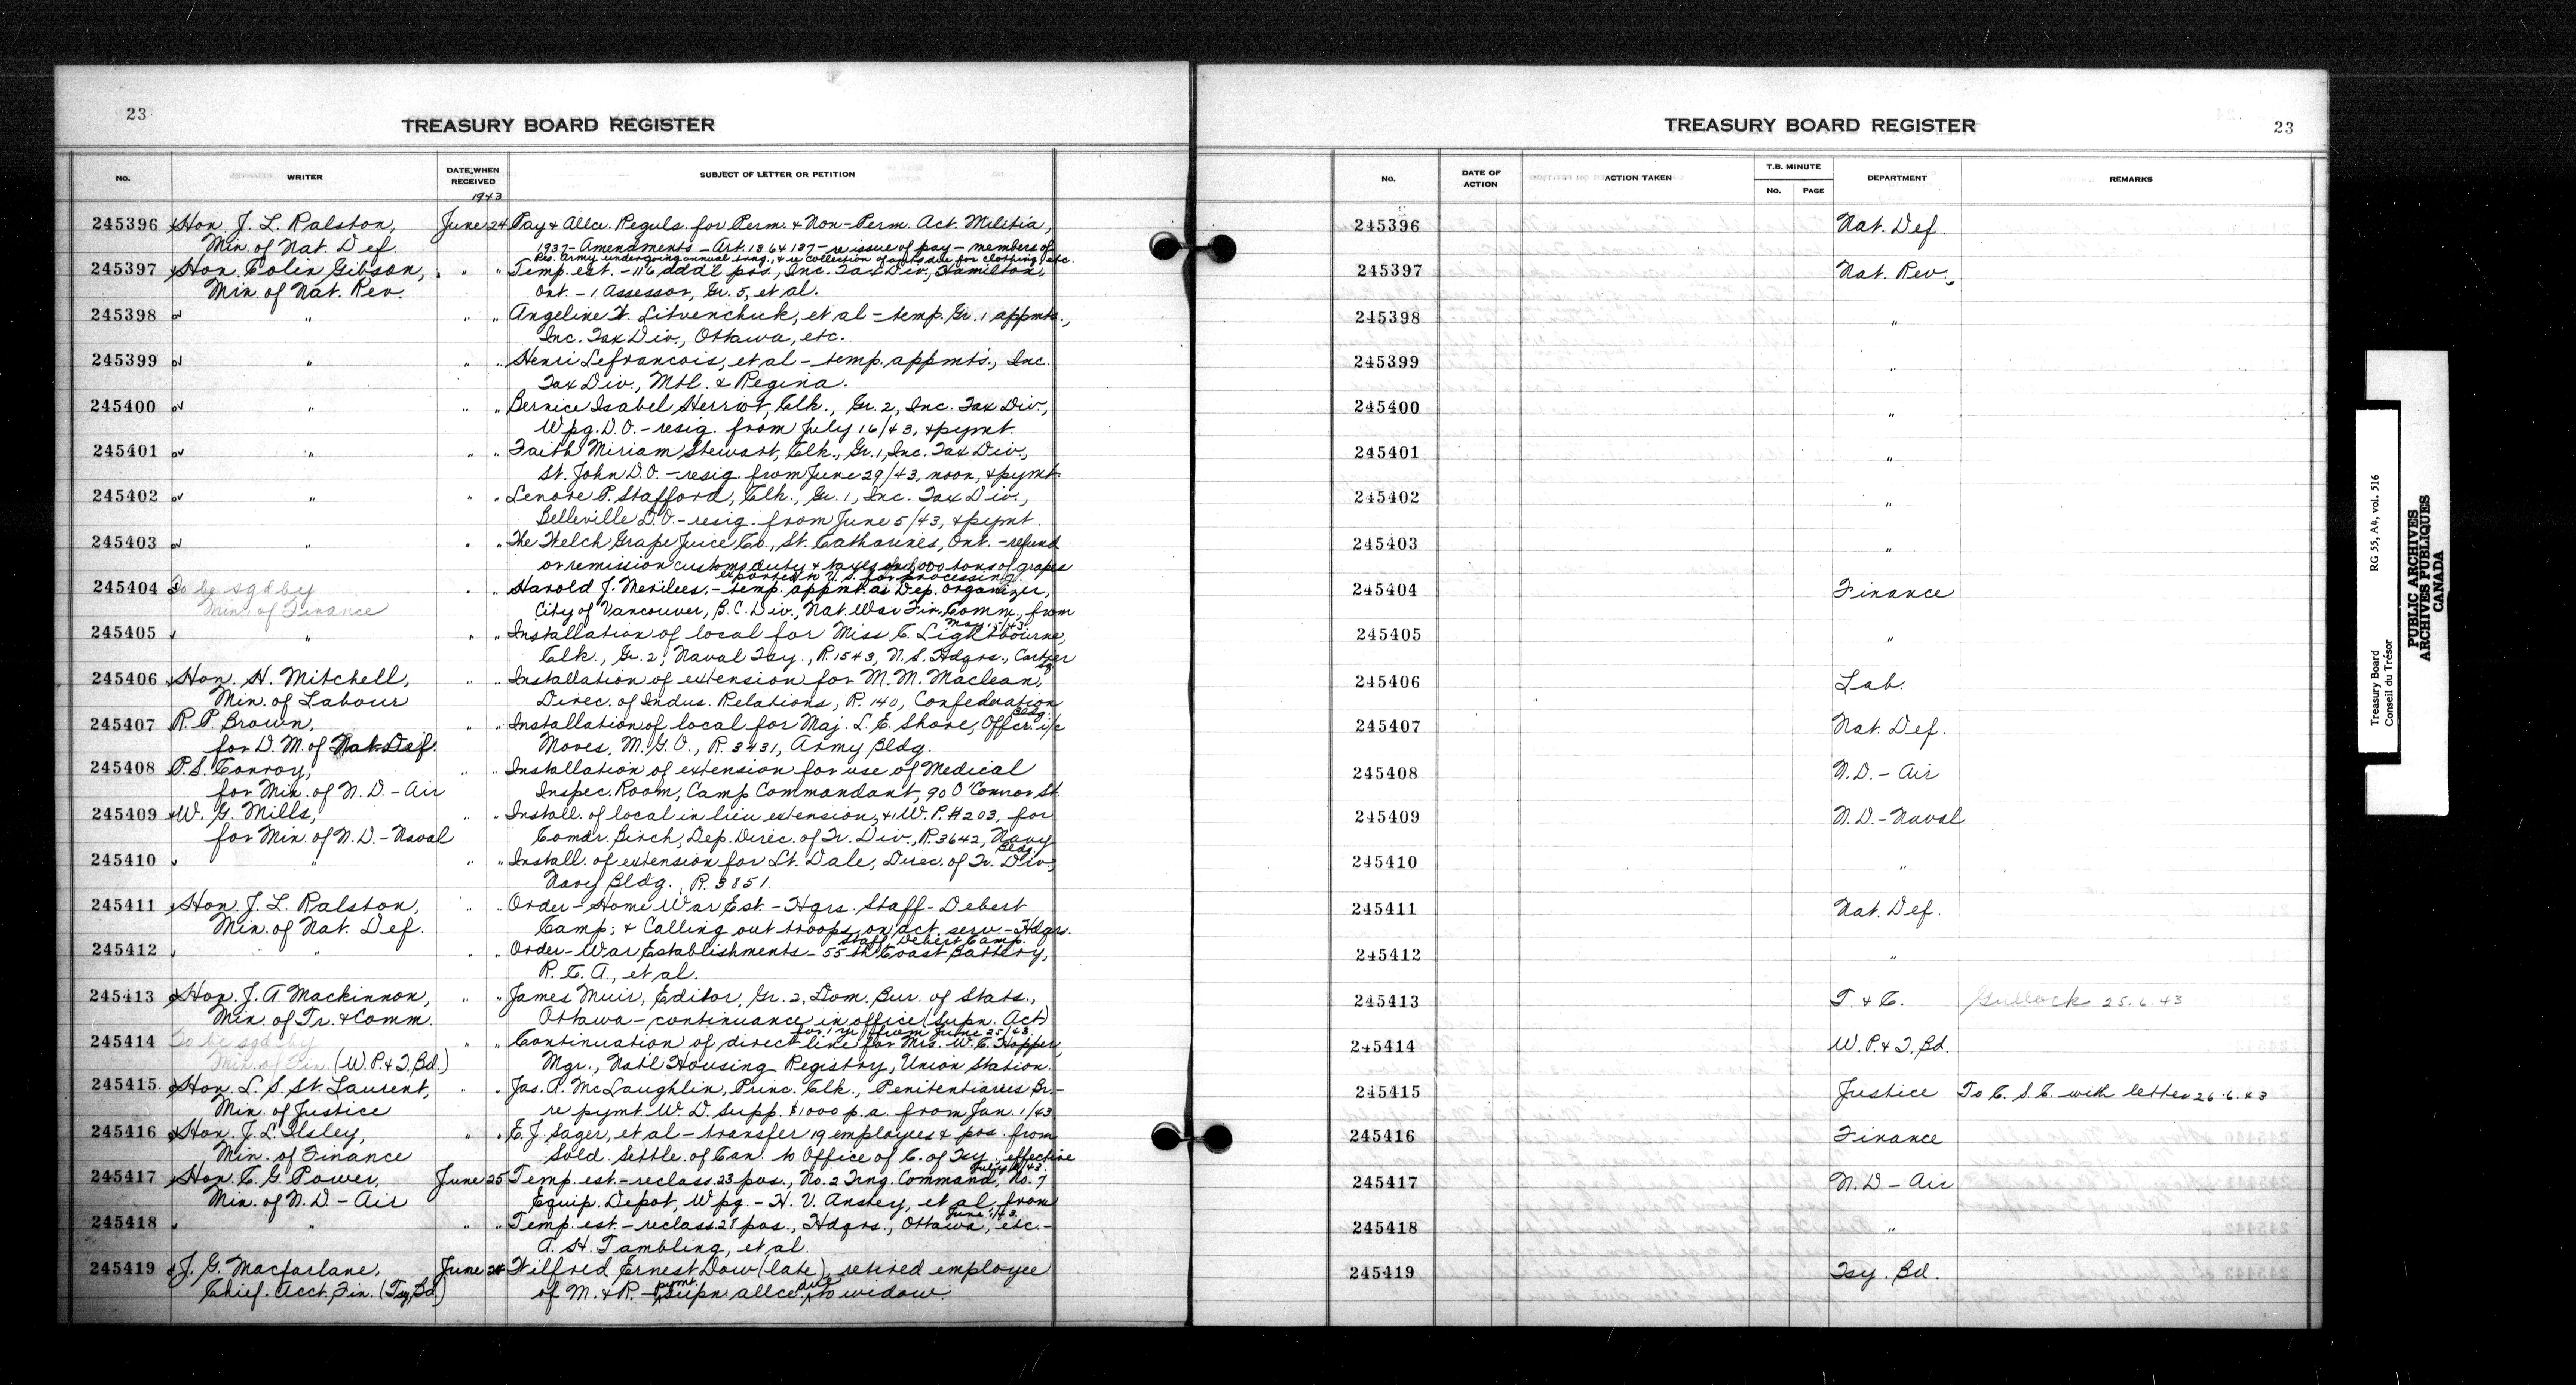 23
TREASURY BOARD REGISTER
No. WRITER DATE WHEN RECEIVED SUBJECT OF LETTER OR PETITION
1943
245396 Hon. J. L. Ralston, June 24 Pay & Allce. Reguls. for Perm. & Non-Perm. Act. Militia,
Min. of Nat. Def. 1937 - Amendments - Art. 136 & 137 - re issue of pay - members of
Res. Army undergoing annual trng., & re collection of amts due for clothing, etc.
245397 Hon. Colin Gibson, " " Temp. est. - 116 add'l pos., Inc. Tax Div., Hamilton,
Min. of Nat. Rev. Ont. - 1 Assessor, Gr. 5, et al.
245398 " " " Angeline W. Litvenchuk, et al - temp. Gr. 1 appmts.,
Inc. Tax Div., Ottawa, etc.
245399 " " " Henri Lefrancois, et al - temp. appmts., Inc.
Tax Div., Mtl. & Regina.
245400 " " " Bernice Isabel Herriot, Clk., Gr. 2, Inc. Tax Div.,
Wpg. D.O. - resig. from July 16/43, & pymt.
245401 " " " Faith Miriam Stewart, Clk., Gr. 1, Inc. Tax Div.,
St. John D.O. - resig. from June 29/43, noon, & pymt.
245402 " " " Lenore P. Stafford, Clk., Gr. 1, Inc. Tax Div.,
Belleville D.O. - resig. from June 5/43, & pymt.
245403 " " " The Welch Grape Juice Co., St. Catharines, Ont. - refund
or remission customs duty & taxes on 1,000 tons of grapes
exported to U.S. for processing.
245404 To be sgd by " " Harold J. Merilees, - temp. appmt. as Dep. Organizer,
Min. of Finance City of Vancouver, B.C. Div., Nat. War Fin. Comm., from
May 15/43.
245405 " " " Installation of local for Miss C. Lightbourne,
Clk., Gr. 2, Naval Tsy., R. 1543, N.S. Hdqrs., Cartier
Sq.
245406 Hon. H. Mitchell, " " Installation of extension for M. M. Maclean,
Min. of Labour Direc. of Indus. Relations, R. 140, Confederation
Bldg.
245407 R. P. Brown, " " Installation of local for Maj. L. E. Shore, Offcr. i/c
for D. M. of Nat. Def. Moves, M.G.O., R. 3431, Army Bldg.
245408 P. S. Conroy, " " Installation of extension for use of Medical
for Min. of N.D. - Air Inspec. Room, Camp Commandant, 90 O'Connor St.
245409 W. G. Mills, " " Install. of local in lieu extension, & 1 W.P. #203, for
for Min. of N.D. - Naval Comdr. Birch, Dep. Direc. of Tr. Div., R. 3642, Navy
Bldg.
245410 " " " Install. of extension for Lt. Dale, Direc. of Tr. Div.,
Navy Bldg., R. 3851.
245411 Hon. J. L. Ralston, " " Order - Home War Est. - Hqrs. Staff - Debert
Min. of Nat. Def. Camp; & Calling out troops on act. serv. - Hdqrs.
Staff, Debert Camp.
245412 " " " Order - War Establishments - 55th Coast Battery,
R. C. A., et al.
245413 Hon. J. A. Mackinnon, " " James Muir, Editor, Gr. 2, Dom. Bur. of Stats.,
Min. of Tr. & Comm. Ottawa - continuance in office (Supn. Act)
for 1 yr. from June 25/43.
245414 To be sgd by " " Continuation of direct line for Mrs. W. C. Hopper,
Min. of Fin. (W.P. & T. Bd.) Mgr., Nat'l Housing Registry, Union Station.
245415 Hon. L. S. St. Laurent, " " Jas. A. McLaughlin, Princ. Clk., Penitentiaries Br. -
Min. of Justice re pymt. W.D. supp. $1000 p.a. from Jan. 1/43
245416 Hon. J. L. Ilsley, " " E. J. Sager, et al - transfer 19 employees & pos. from
Min. of Finance Sold. Settle. of Can. to Office of C. of Tsy., effective
July 1/43.
245417 Hon. C. G. Power, June 25 Temp. est. - reclass. 23 pos., No. 2 Trng. Command, No. 7
Min. of N.D. - Air Equip. Depot, Wpg. - H. V. Anstey, et al, from
June 1/43.
245418 " " " Temp. est. - reclass. 28 pos., Hdqrs., Ottawa, etc. -
A. H. Tambling, et al.
245419 J. G. Macfarlane, June 24 Wilfred Ernest Dow (late), retired employee
Chief. Acct. Fin. (Tsy. Bd.) of M. & R. - pymt. supn. allce. due to widow.
TREASURY BOARD REGISTER
23
No. DATE OF ACTION ACTION TAKEN T.B. MINUTE No. PAGE DEPARTMENT REMARKS
245396 Nat. Def.
245397 Nat. Rev.
245398 "
245399 "
245400 "
245401 "
245402 "
245403 "
245404 Finance
245405 "
245406 Lab.
245407 Nat. Def.
245408 N.D. - Air
245409 N.D. - Naval
245410 "
245411 Nat. Def.
245412 "
245413 T. & C. Gullock 25.6.43
245414 W.P. & T. Bd.
245415 Justice To C. S. C. with letter 26.6.43
245416 Finance
245417 N.D. - Air
245418 "
245419 Tsy. Bd.
Treasury Board RG 55, A4, vol. 516
Conseil du Trésor
PUBLIC ARCHIVES
ARCHIVES PUBLIQUES
CANADA